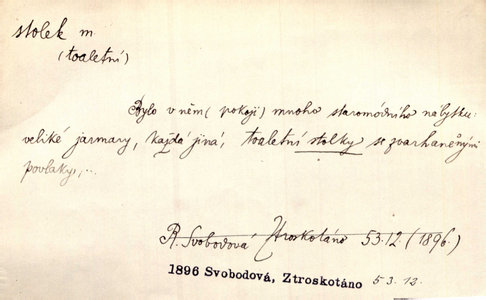 stolek m
(toaletní)
Bylo v něm (pokoji) mnoho staromódního nábytku:
veliké jarmary, každá jiná, toaletní stolky se zvarhaněnými
povlaky,...
R. Svobodová Ztroskotáno 53.12. (1896.)
1896 Svobodová, Ztroskotáno 53.12.